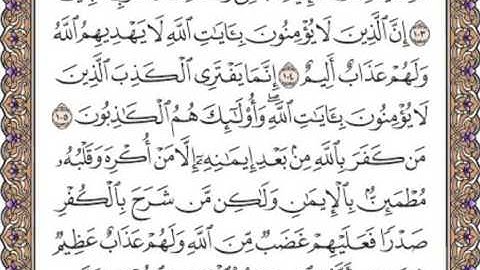 ١٠٣ إِنَّ ٱلَّذِينَ لَا يُؤْمِنُونَ بِـَٔايَـٰتِ ٱللَّهِ لَا يَهْدِيهِمُ ٱللَّهُ
وَلَهُمْ عَذَابٌ أَلِيمٌ ١٠٤ إِنَّمَا يَفْتَرِى ٱلْكَذِبَ ٱلَّذِينَ
لَا يُؤْمِنُونَ بِـَٔايَـٰتِ ٱللَّهِ ۖ وَأُو۟لَـٰٓئِكَ هُمُ ٱلْكَـٰذِبُونَ ١٠٥
مَن كَفَرَ بِٱللَّهِ مِنۢ بَعْدِ إِيمَـٰنِهِۦٓ إِلَّا مَنْ أُكْرِهَ وَقَلْبُهُۥ
مُطْمَئِنٌّۢ بِٱلْإِيمَـٰنِ وَلَـٰكِن مَّن شَرَحَ بِٱلْكُفْرِ
صَدْرًا فَعَلَيْهِمْ غَضَبٌ مِّنَ ٱللَّهِ وَلَهُمْ عَذَابٌ عَظِيمٌ